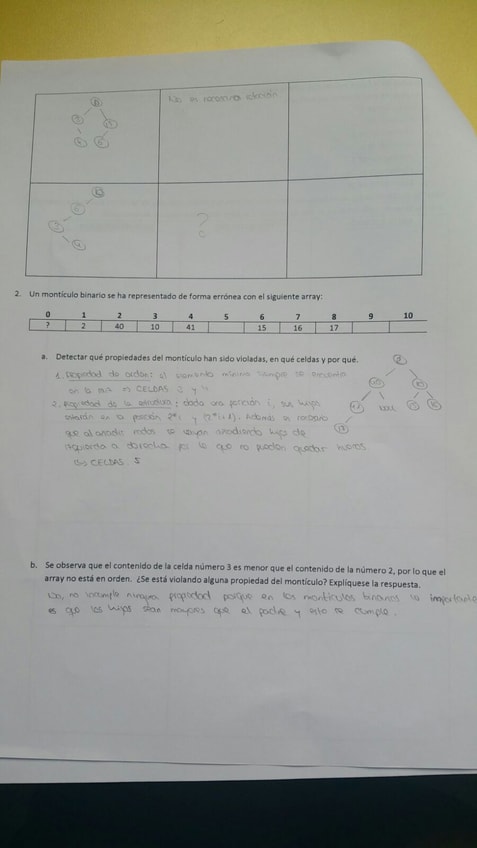 No es necesaria rotación
?
2. Un montículo binario se ha representado de forma errónea con el siguiente array:
0 1 2 3 4 5 6 7 8 9 10
? 2 40 10 41 15 16 17
a. Detectar qué propiedades del montículo han sido violadas, en qué celdas y por qué.
1. Propiedad de orden: el elemento mínimo siempre se encuentra
en la raíz CELDAS 2 y
2. Propiedad de la estructura: dada una posición i, sus hijos
estarán en la posición 2*i y (2*i+1). Además es necesario
que al añadir nodos se vayan añadiendo hijos de
izquierda a derecha por lo que no pueden quedar huecos
CELDAS. 5
b. Se observa que el contenido de la celda número 3 es menor que el contenido de la número 2, por lo que el
array no está en orden. ¿Se está violando alguna propiedad del montículo? Explíquese la respuesta.
No, no incumple ninguna propiedad porque en los montículos binarios lo importante
es que los hijos sean mayores que el padre y esto se cumple.